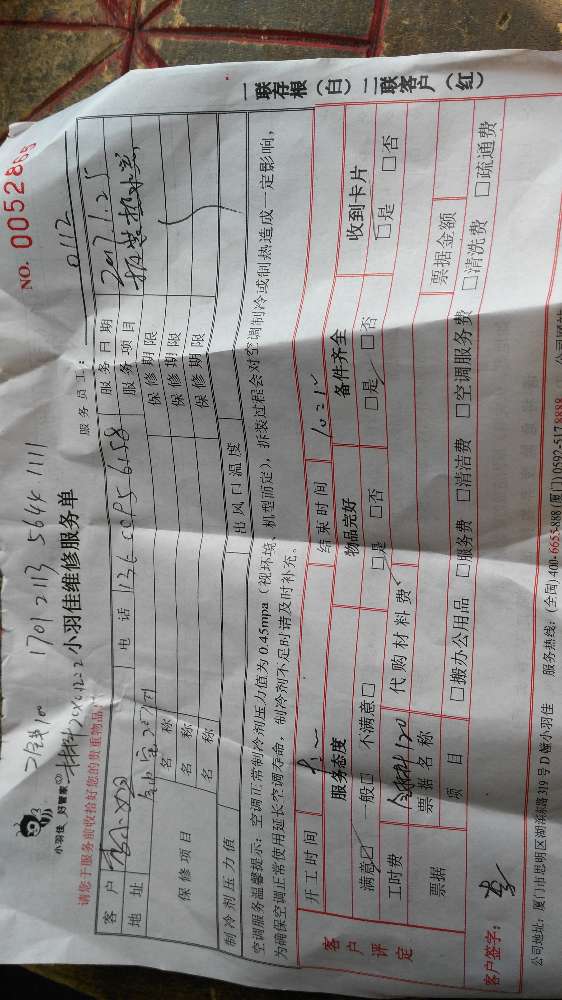 NO. 0052865
1701 2113 5644 1111
小羽佳 好管家
小羽佳维修服务单
服务员工: 0112
请您于服务前收拾好您的贵重物品!
客户
电话
服务日期 2017.1.25
地址
服务项目
保修项目
名称
保修期限
名称
保修期限
名称
保修期限
制冷剂压力值
出风口温度
空调服务温馨提示: 空调正常制冷剂压力值为 0.45mpa (视环境、机型而定), 拆装过程会对空调制冷或制热造成一定影响,
为确保空调正常使用延长空调寿命, 制冷剂不足时请及时补充。
客户评定
开工时间
结束时间
服务态度
物品完好
备件齐全
收到卡片
满意☑ 一般□ 不满意□
□是 □否
□是 □否
□是 □否
工时费
代购材料费
票据
票据名称
票据金额
项目
□搬办公用品 □服务费 □清洁费 □空调服务费 □清洗费 □疏通费
客户签字:
公司地址: 厦门市思明区湖滨南路 319 号 D 幢小羽佳
服务热线: (全国) 400-6655-888 (厦门) 0592-517 8888
一联存根(白)二联客户(红)